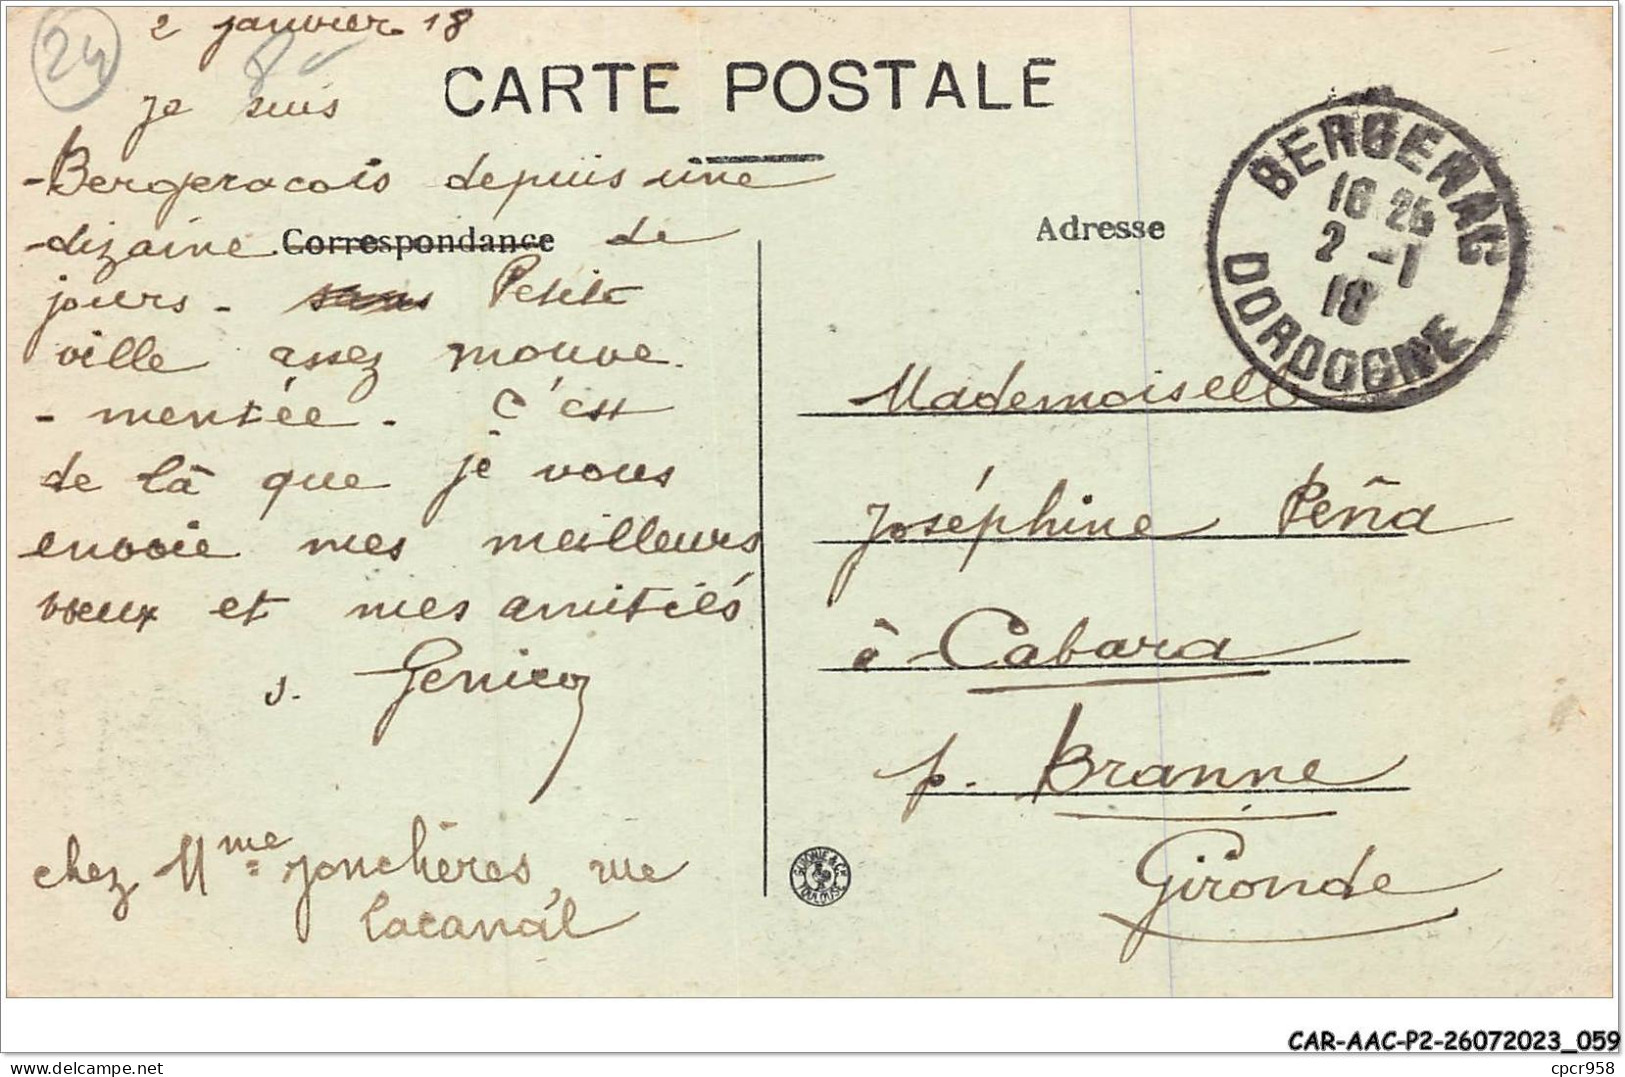 2 janvier 18
24
CARTE POSTALE
je suis
-Bergeracois depuis une
-dizaine Correspondance de
jours - Petite
ville assez mouve-
- mentée. C'est
de là que je vous
envoie mes meilleurs
voeux et mes amitiés
chez Mme Jonchères, rue
Lacanal
BERGERAC
18 25
2 -1
18
DORDOGNE
Adresse
Mademoiselle
Joséphine Peña
à Cabara
p. Branne
Gironde
TOULOUSE
CAR-AAC-P2-26072023_059
delcampe.net
cpcr958